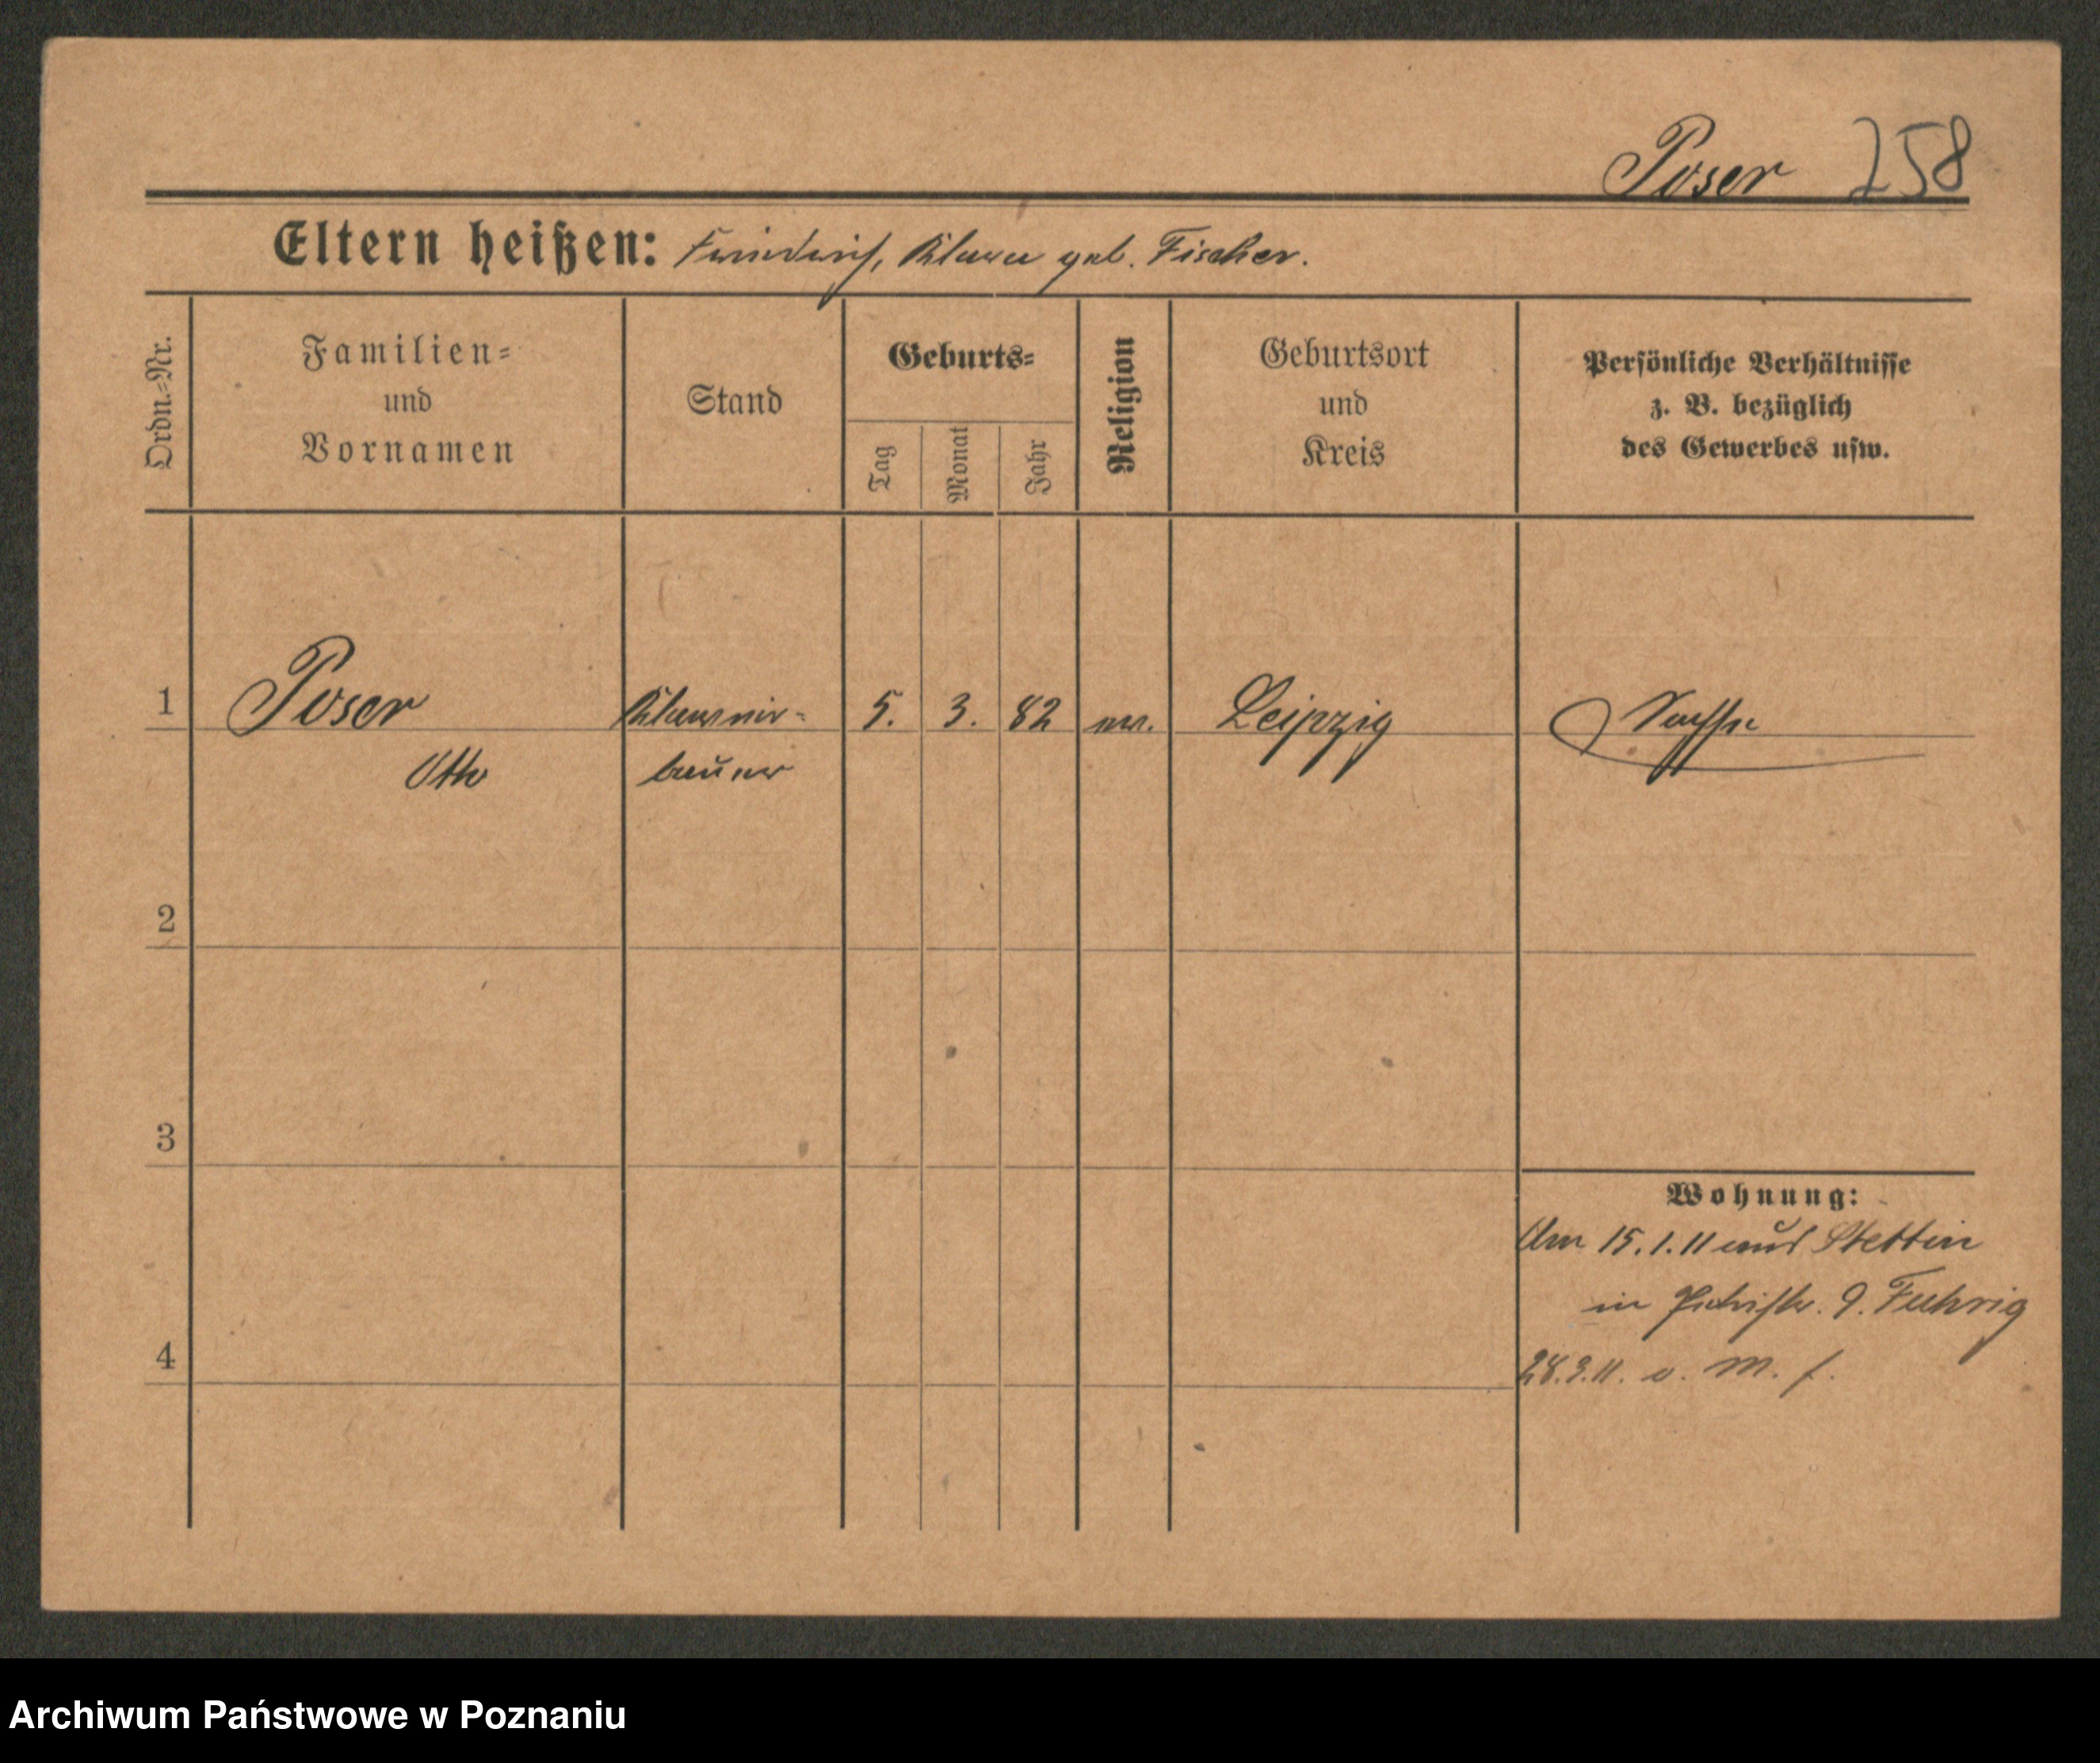 Poser 258
Eltern heißen: Friedrich, Klara geb. Fischer.
Ordn.-Nr.
Familien-
und
Vornamen
Stand
Geburts-
Tag
Monat
Jahr
Religion
Geburtsort
und
Kreis
Persönliche Verhältnisse
z. B. bezüglich
des Gewerbes usw.
1 Poser Klavier- 5. 3. 82 ev. Leipzig Sachse
Otto bauer
2
3
Wohnung:
Am 15.1.11 aus Stettin
in Petristr. 9. Fuhrig
4
28.3.11. v. M. f.
Archiwum Państwowe w Poznaniu